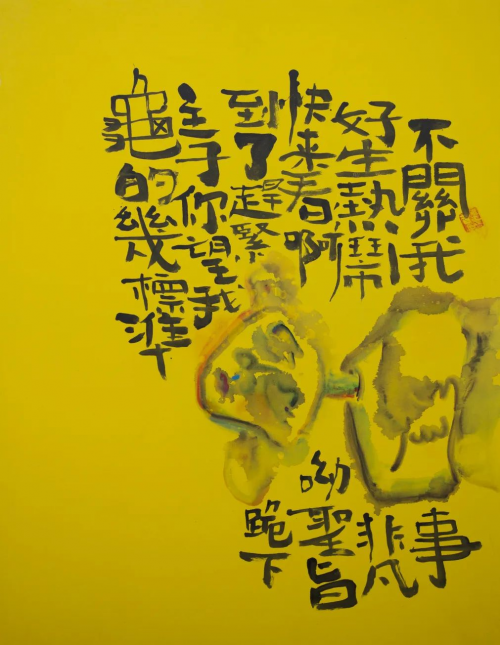 不關我事
好生熱鬧非凡
快來看啊呦聖旨
到了趕緊跪下
主子你望我
龜的幾標準